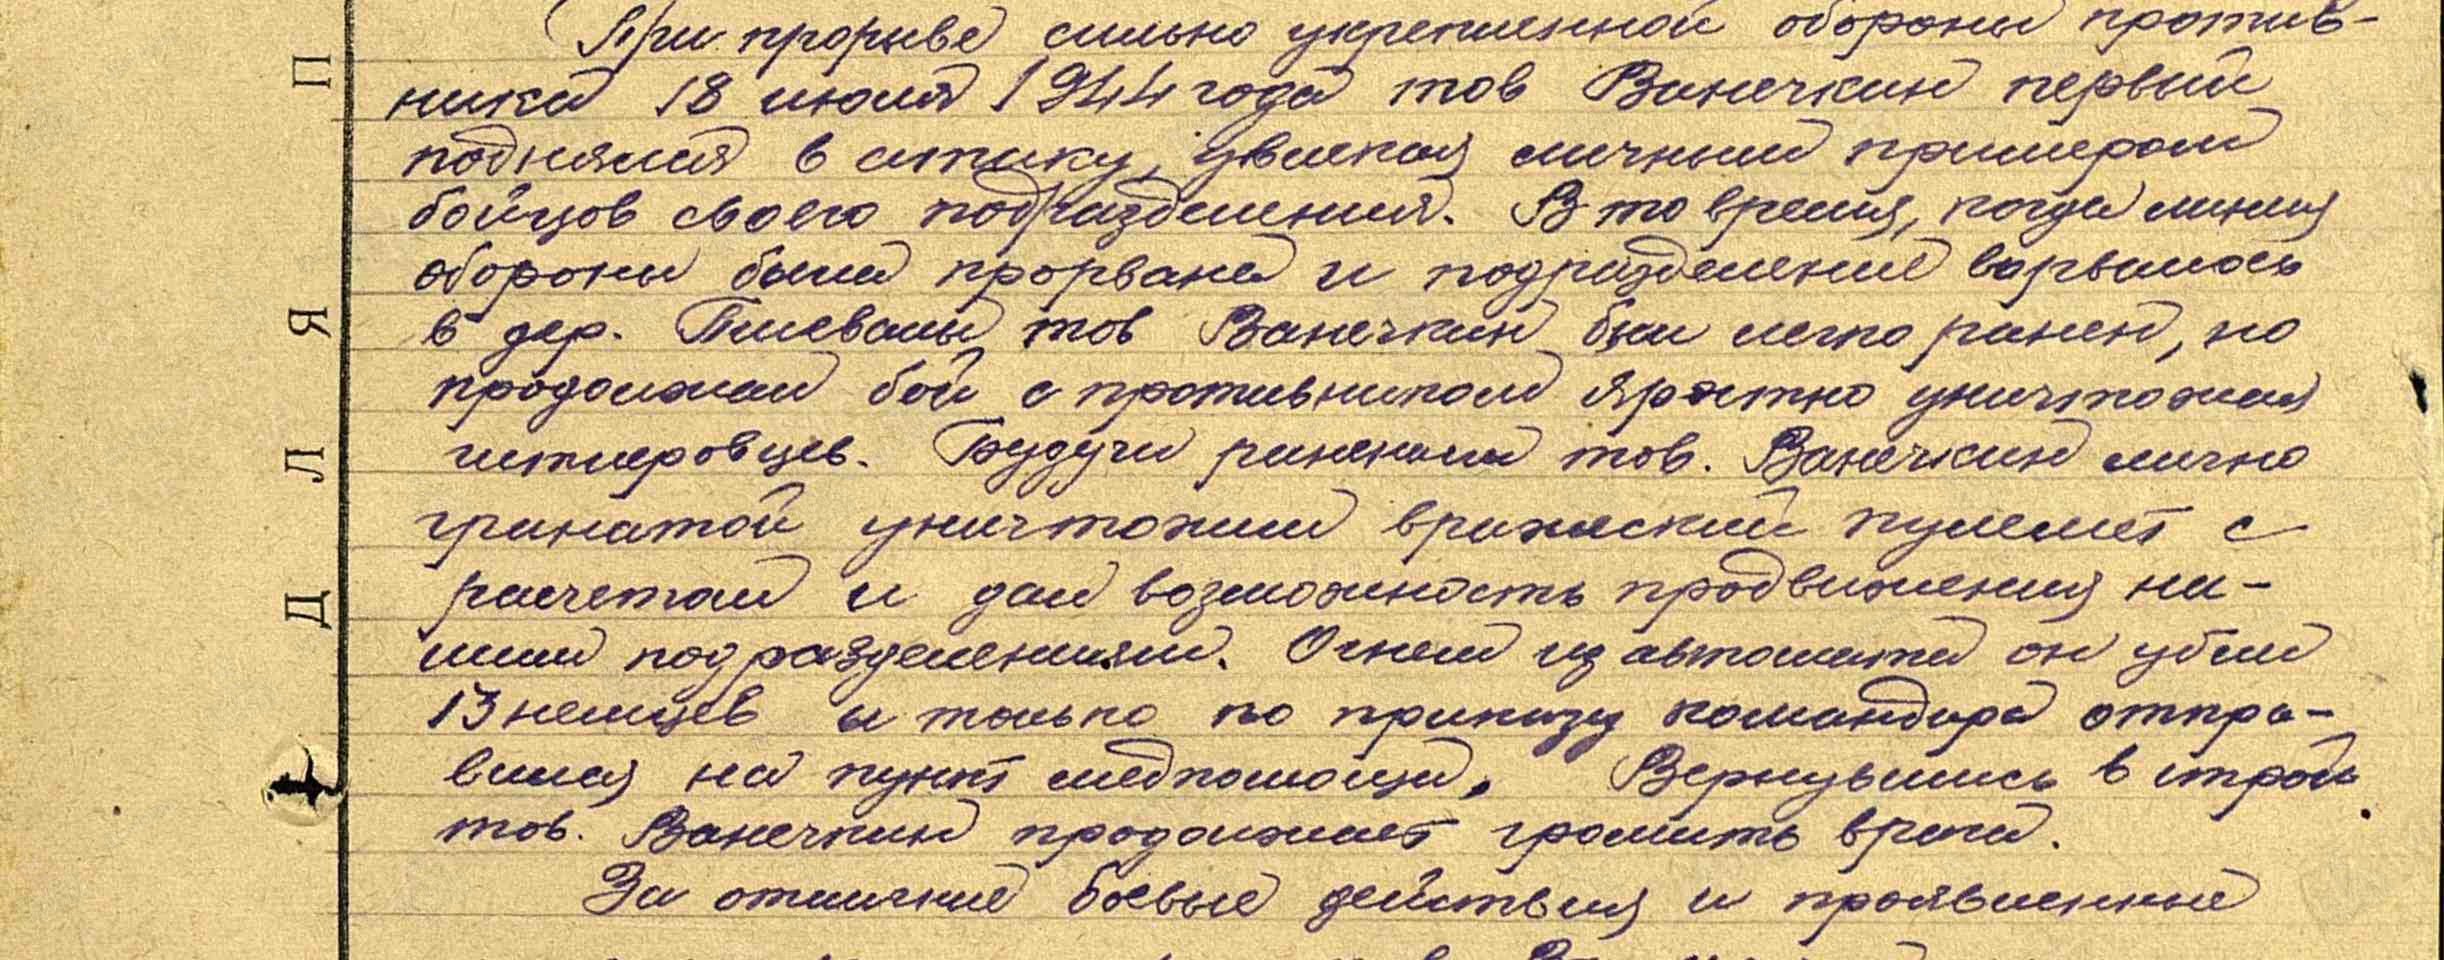 При прорыве сильно укрепленной обороны против-
ника 18 июля 1944 года тов Ванечкин первый
поднялся в атаку, увлекая личным примером
бойцов своего подразделения. В то время, когда линия
обороны была прорвана и подразделение ворвалось
в дер. тов Ванечкин был легко ранен, но
продолжал бой с противником яростно уничтожая
гитлеровцев. Будучи раненым тов. Ванечкин лично
гранатой уничтожил вражеский пулемет с
расчетом и дал возможность продвижения на-
шим подразделениям. Огнем из автомата он убил
13 немцев и только по приказу командира отпра-
вился на пункт медпомощи. Вернувшись в строй
тов. Ванечкин продолжает громить врага.
За отличные боевые действия и проявленные
Д Л Я П